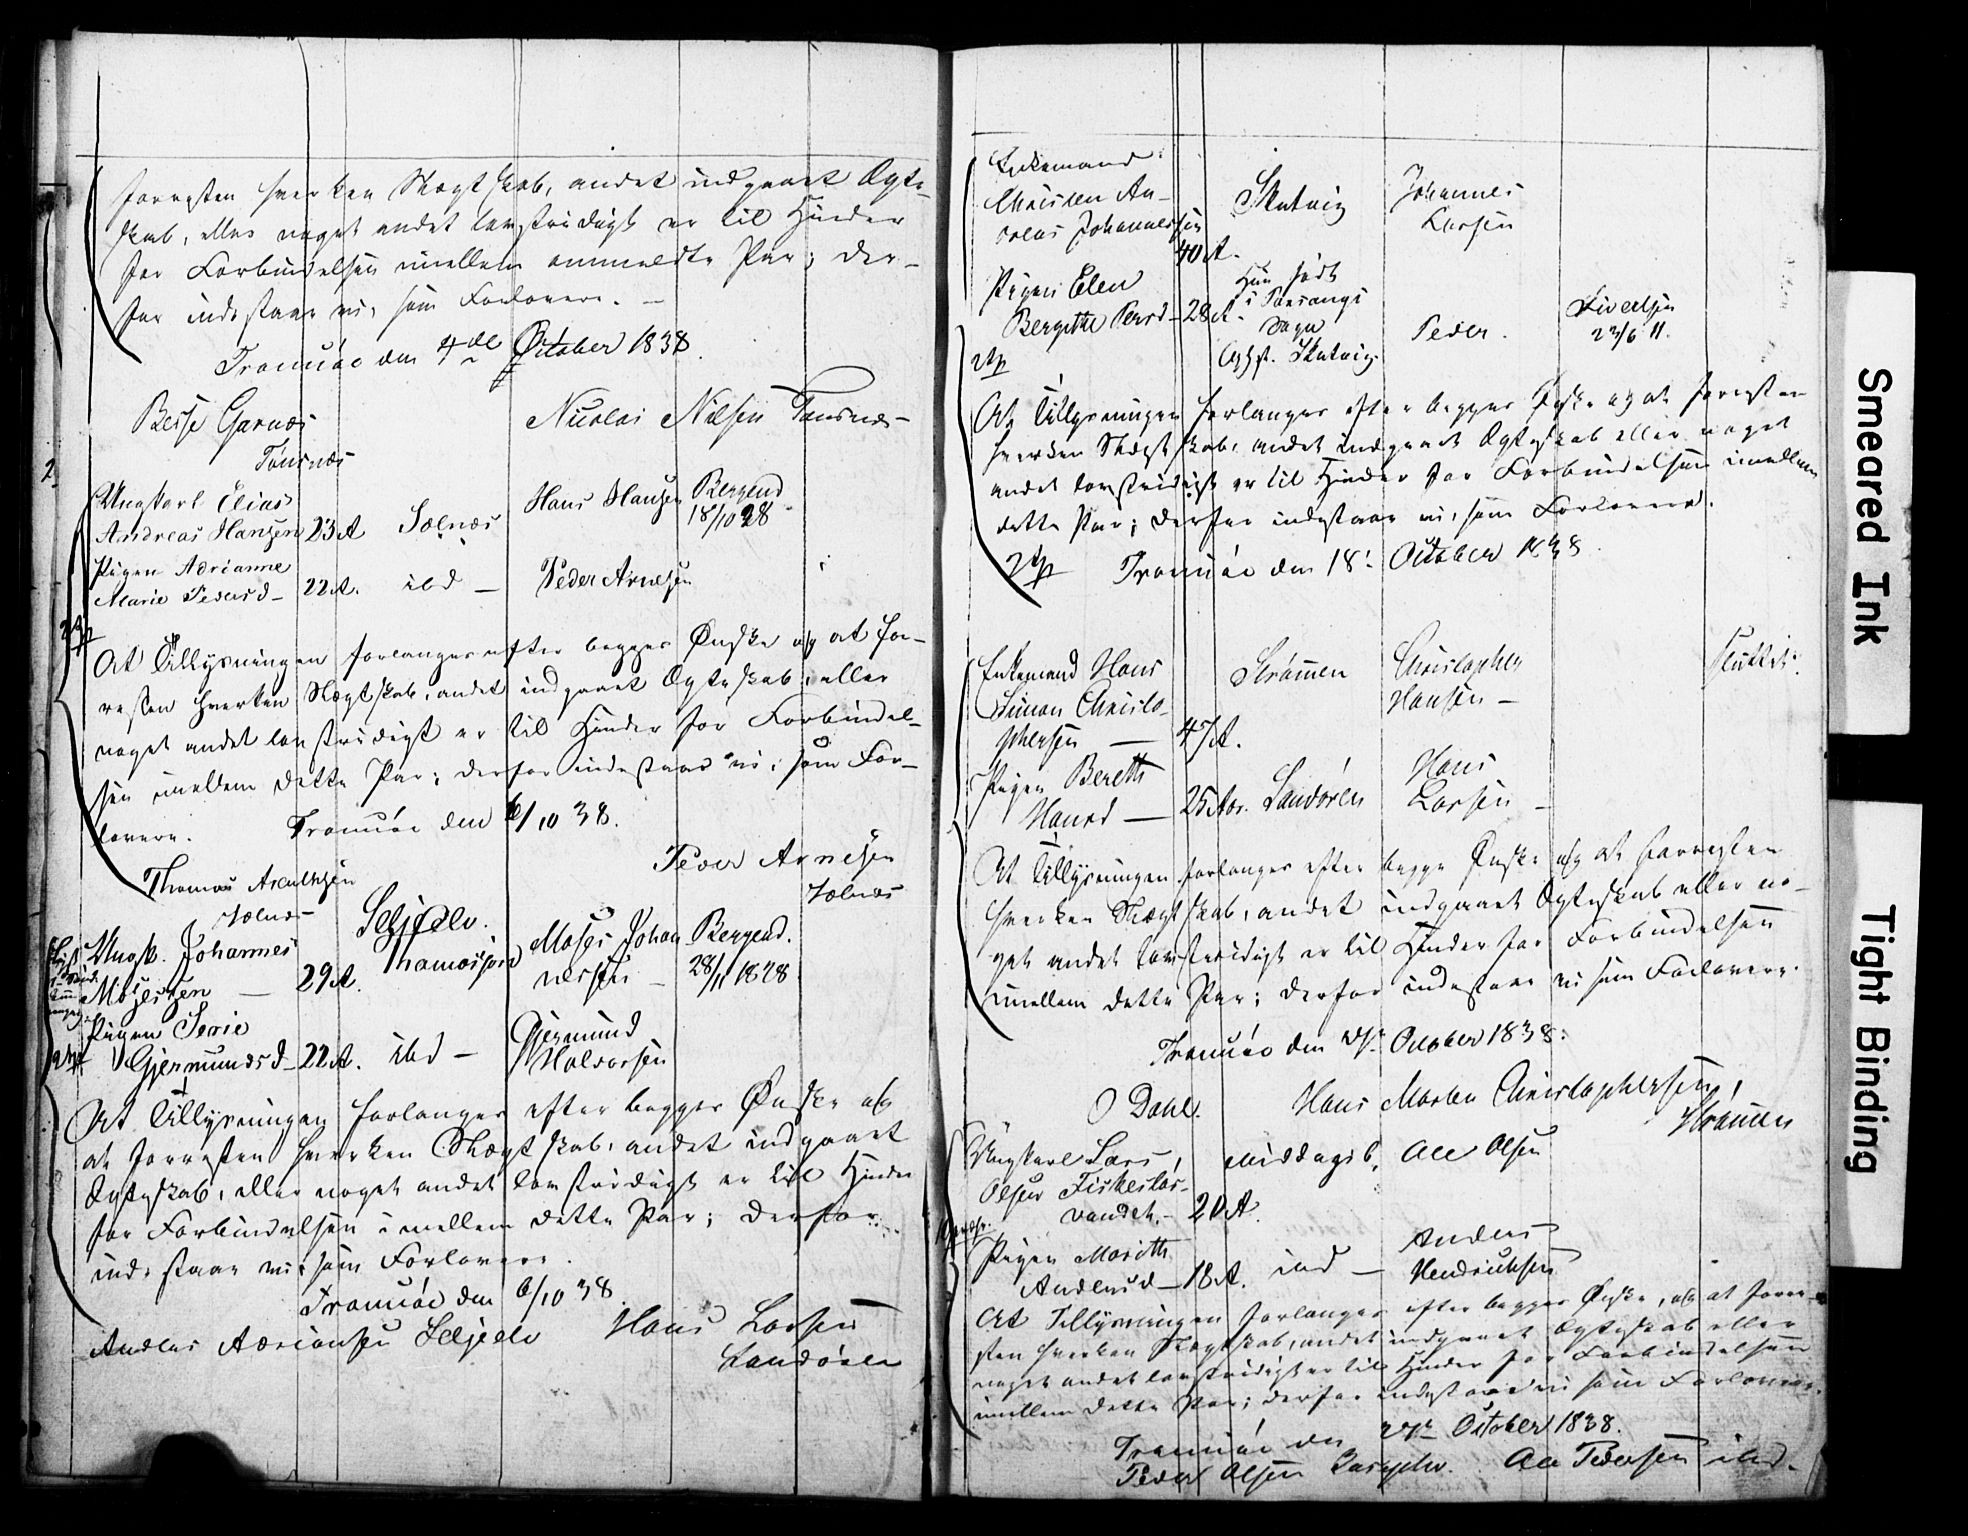 foresten hverken Slægtskab, andet indgaaet Ægte-
skab, eller noget andet lovstridigt er til Hinder
for Forbindelsen imellem anmeldte Par; der-
for indestaae vi, som Forlovere. —
Tromsöe den 4de October 1838.
Besse Garnæs
Nicolai Nilsen Tønsnæs
Tønsnæs
2.
Ungkarl Elias
Andreas Hansen 23 A Solnæs Hans Hansen Bergend
18/10 28
Pigen Adrianne
Marie Pedersd — 22 A. ibd — Peder Arnesen
At Tillysningen forlanges efter begges Ønske og at for-
resten hverken Slægtskab, andet indgaaet Ægteskab, eller
noget andet lovstridigt er til Hinder for Forbindel-
sen imellem dette Par; derfor indestaae vi, som For-
lovere. Tromsöe den 6/10 38.
Peder Arnesen
Solnæs
Thomas
Solnæs
Seljeelv.
Ungk. Johannes
Mosessen — 29 A. Thomasjord Moses Johan-
nessen — Bergend.
28/11 1828
Pigen Serie
Gjermundsd — 22 A. ibd — Gjermund
Halvorsen
At Tillysningen forlanges efter begges Ønske og
at forresten hverken Slægtskab, andet indgaaet
Ægteskab, eller noget andet lovstridigt er til Hinder
for Forbindelsen imellem dette Par; derfor
indestaae vi, som Forlovere.
Tromsöe den 6/10 38.
Andreas Adriansen Seljeelv Hans Larsen
Sandören
Enkemand
Christen An-
dreas Johannessen Skatvig Johannes
Larsen
40 A.
Pigen Elen
Bergithe Persd — 28 A. Hun født
i Porsangs
Sogn
Ophh. Skatvig. Peder. Livelsen
23/6 11.
At Tillysningen forlanges efter begges Ønske og at forresten
hverken Slægtskab, andet indgaaet Ægteskab eller noget
andet lovstridigt er til Hinder for Forbindelsen imellem
dette Par; derfor indestaae vi, som Forlovere.
Tromsöe den 18. October 1838.
Enkemand Hans
Simon Christo-
phersen — 47 A. Strömen Christopher
Hansen —
Pigen Bereth
Hansd — 25 Aar. Sandören Hans
Larsen —
At Tillysningen forlanges efter begge Ønske og at forresten
hverken Slægtskab, andet indgaaet Ægteskab eller no-
get andet lovstridigt er til Hinder for Forbindelsen
imellem dette Par; derfor indestaae vi som Forlovere.
Tromsöe den October 1838.
O Dahl. Hans Morten Christophersen,
Strömen
Ungkarl Lars
Olsen Fiskeløs-
vandet. — 20 A. Middagsb. Ole Olsen
Pigen Marith
Andersd — 18 A. ibd — Anders
Hendrichsen
At Tillysningen forlanges efter begges Ønske, og at forre-
sten hverken Slægtskab, andet indgaaet Ægteskab eller
noget andet lovstridigt er til Hinder for Forbindelsen
imellem dette Par; derfor indestaae vi som Forlovere.
Tromsöe den October 1838.
Peder Olsen Ole Pedersen ibd.
Smeared Ink
Tight Binding